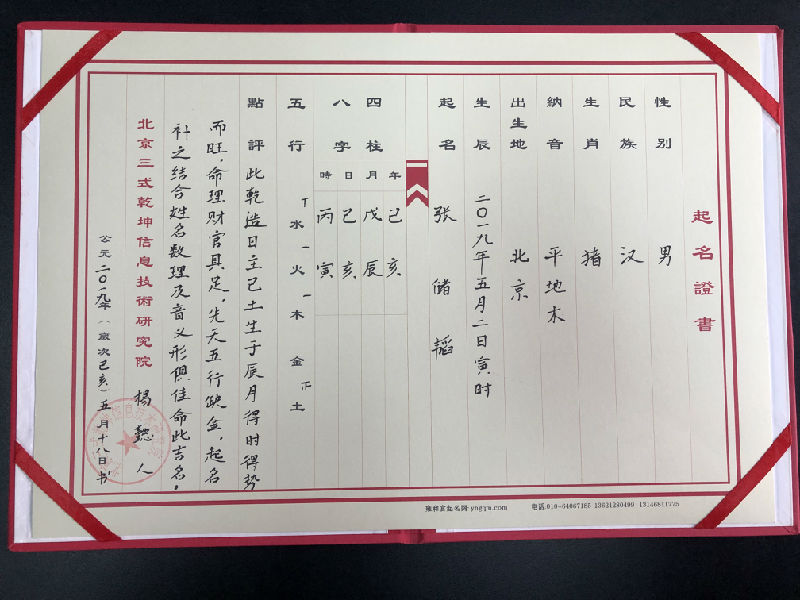 起名證書
性别 男
民族 汉
生肖 猪
納音 平地木
出生地 北京
生辰 二〇一九年五月二日寅时
起名 张储韜
四柱八字
年 己亥
月 戊辰
日 己亥
時 丙寅
五行 水一火一木 金 土
點評 此乾造日主己土生于辰月得时得势
而旺，命理财官具足，先天五行缺金，起名
补之结合姓名数理及音义形俱佳命此吉名，
北京三式乾坤信息技術研究院 杨懿人
公元二〇一九年（歲次己亥）五月十八日书
电话:010-64067166 13621290499